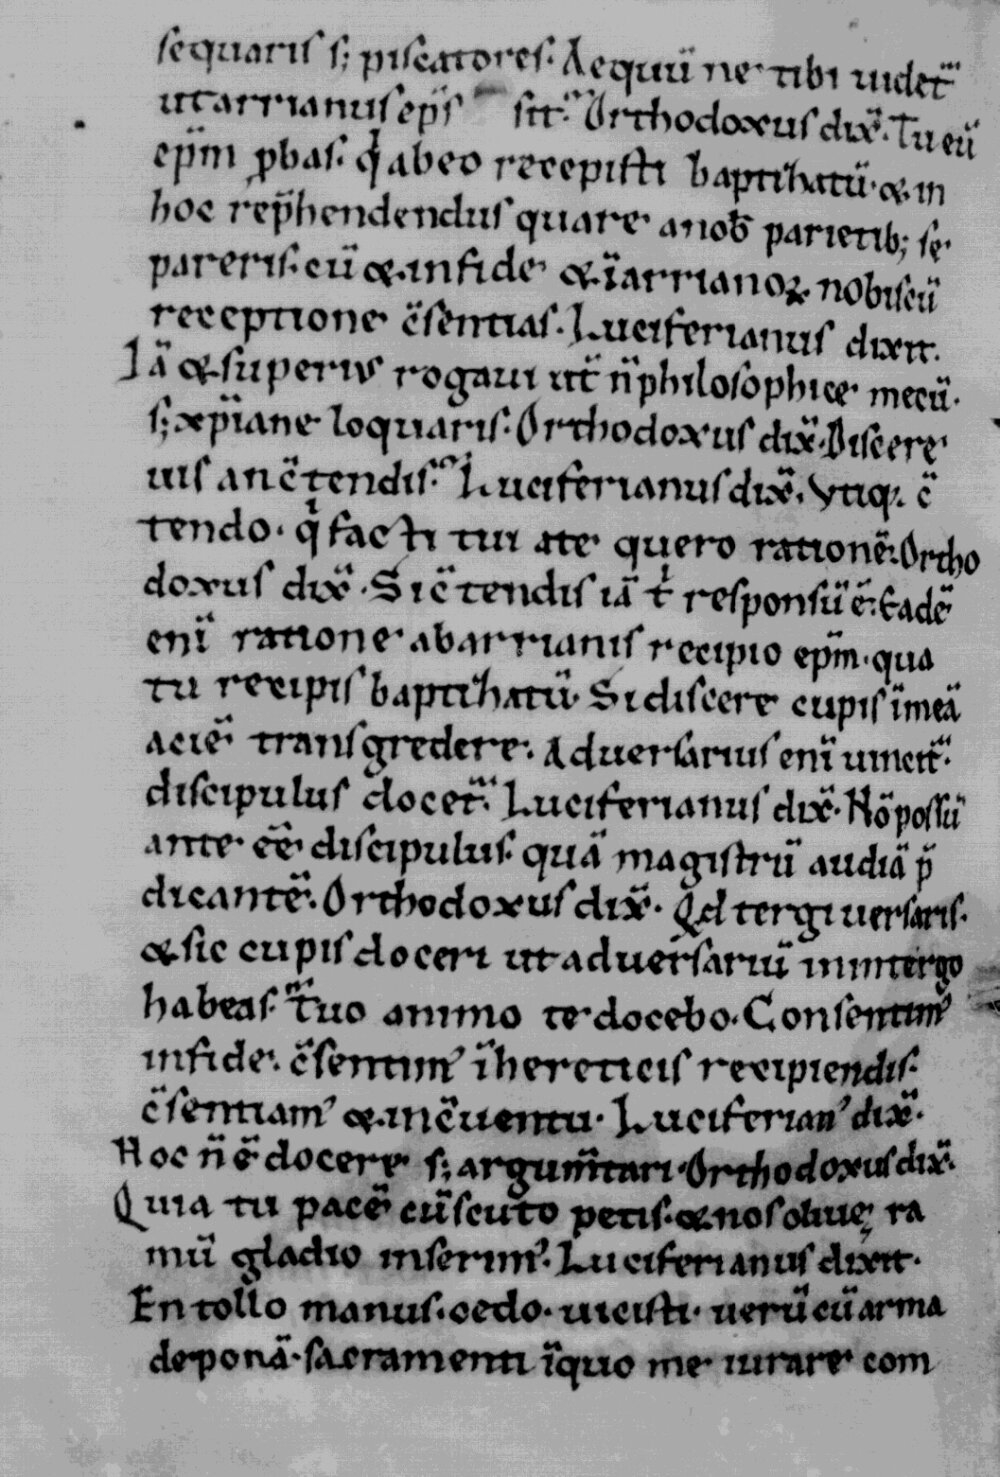 sequaris s; piscatores. Aequū ne tibi uidet̄
ut arrianus ep̄s sit. Orthodoxus dix̄. Tu eū
ep̄m ꝓbas. q̇ abeo recepisti baptizatū. & in
hoc rep̄hendendus quare a nob̄ parietib; se
pareris. cū & in fide & ī arrianoꝝ nobiscū
receptione c̄sentias. Luciferianus dixit.
Iā & superius rogaui ut̄ n̄ philosophice mecū.
s; xp̄iane loquaris. Orthodoxus dix̄. Discere
uis an c̄tendis. Luciferianus dix̄. Vtiq. c̄
tendo. q̇ facti tui a te quero rationē. Ortho
doxus dix̄. Si c̄tendis iā ṫ responsū ē. Eadē
enī ratione ab arrianis recipio ep̄m. qua
tu recipis baptizatū. Si discere cupis ī meā
aciē transgredere. Aduersarius enī uincit̄.
discipulus docet̄. Luciferianus dix̄. Nō possū
ante eē discipulus. quā magistrū audiā p̄
dicantē. Orthodoxus dix̄. Qd tergiuersaris.
& sic cupis doceri ut aduersariū in tergo
habeas. tuo animo te docebo. Consentim᾿
in fide. c̄sentim᾿ ī hereticis recipiendis.
c̄sentiam᾿ & in c̄uentu. Luciferian᾿ dix̄.
Hoc n̄ ē docere s; argum̄tari. Orthodoxus dix̄.
Quia tu pacē cū scuto petis. & nos oliuę ra
mū gladio inserim᾿. Luciferianus dixit.
En tollo manus. cedo. uicisti. uerū cū arma
deponā. sacramenti ī quo me iurare com